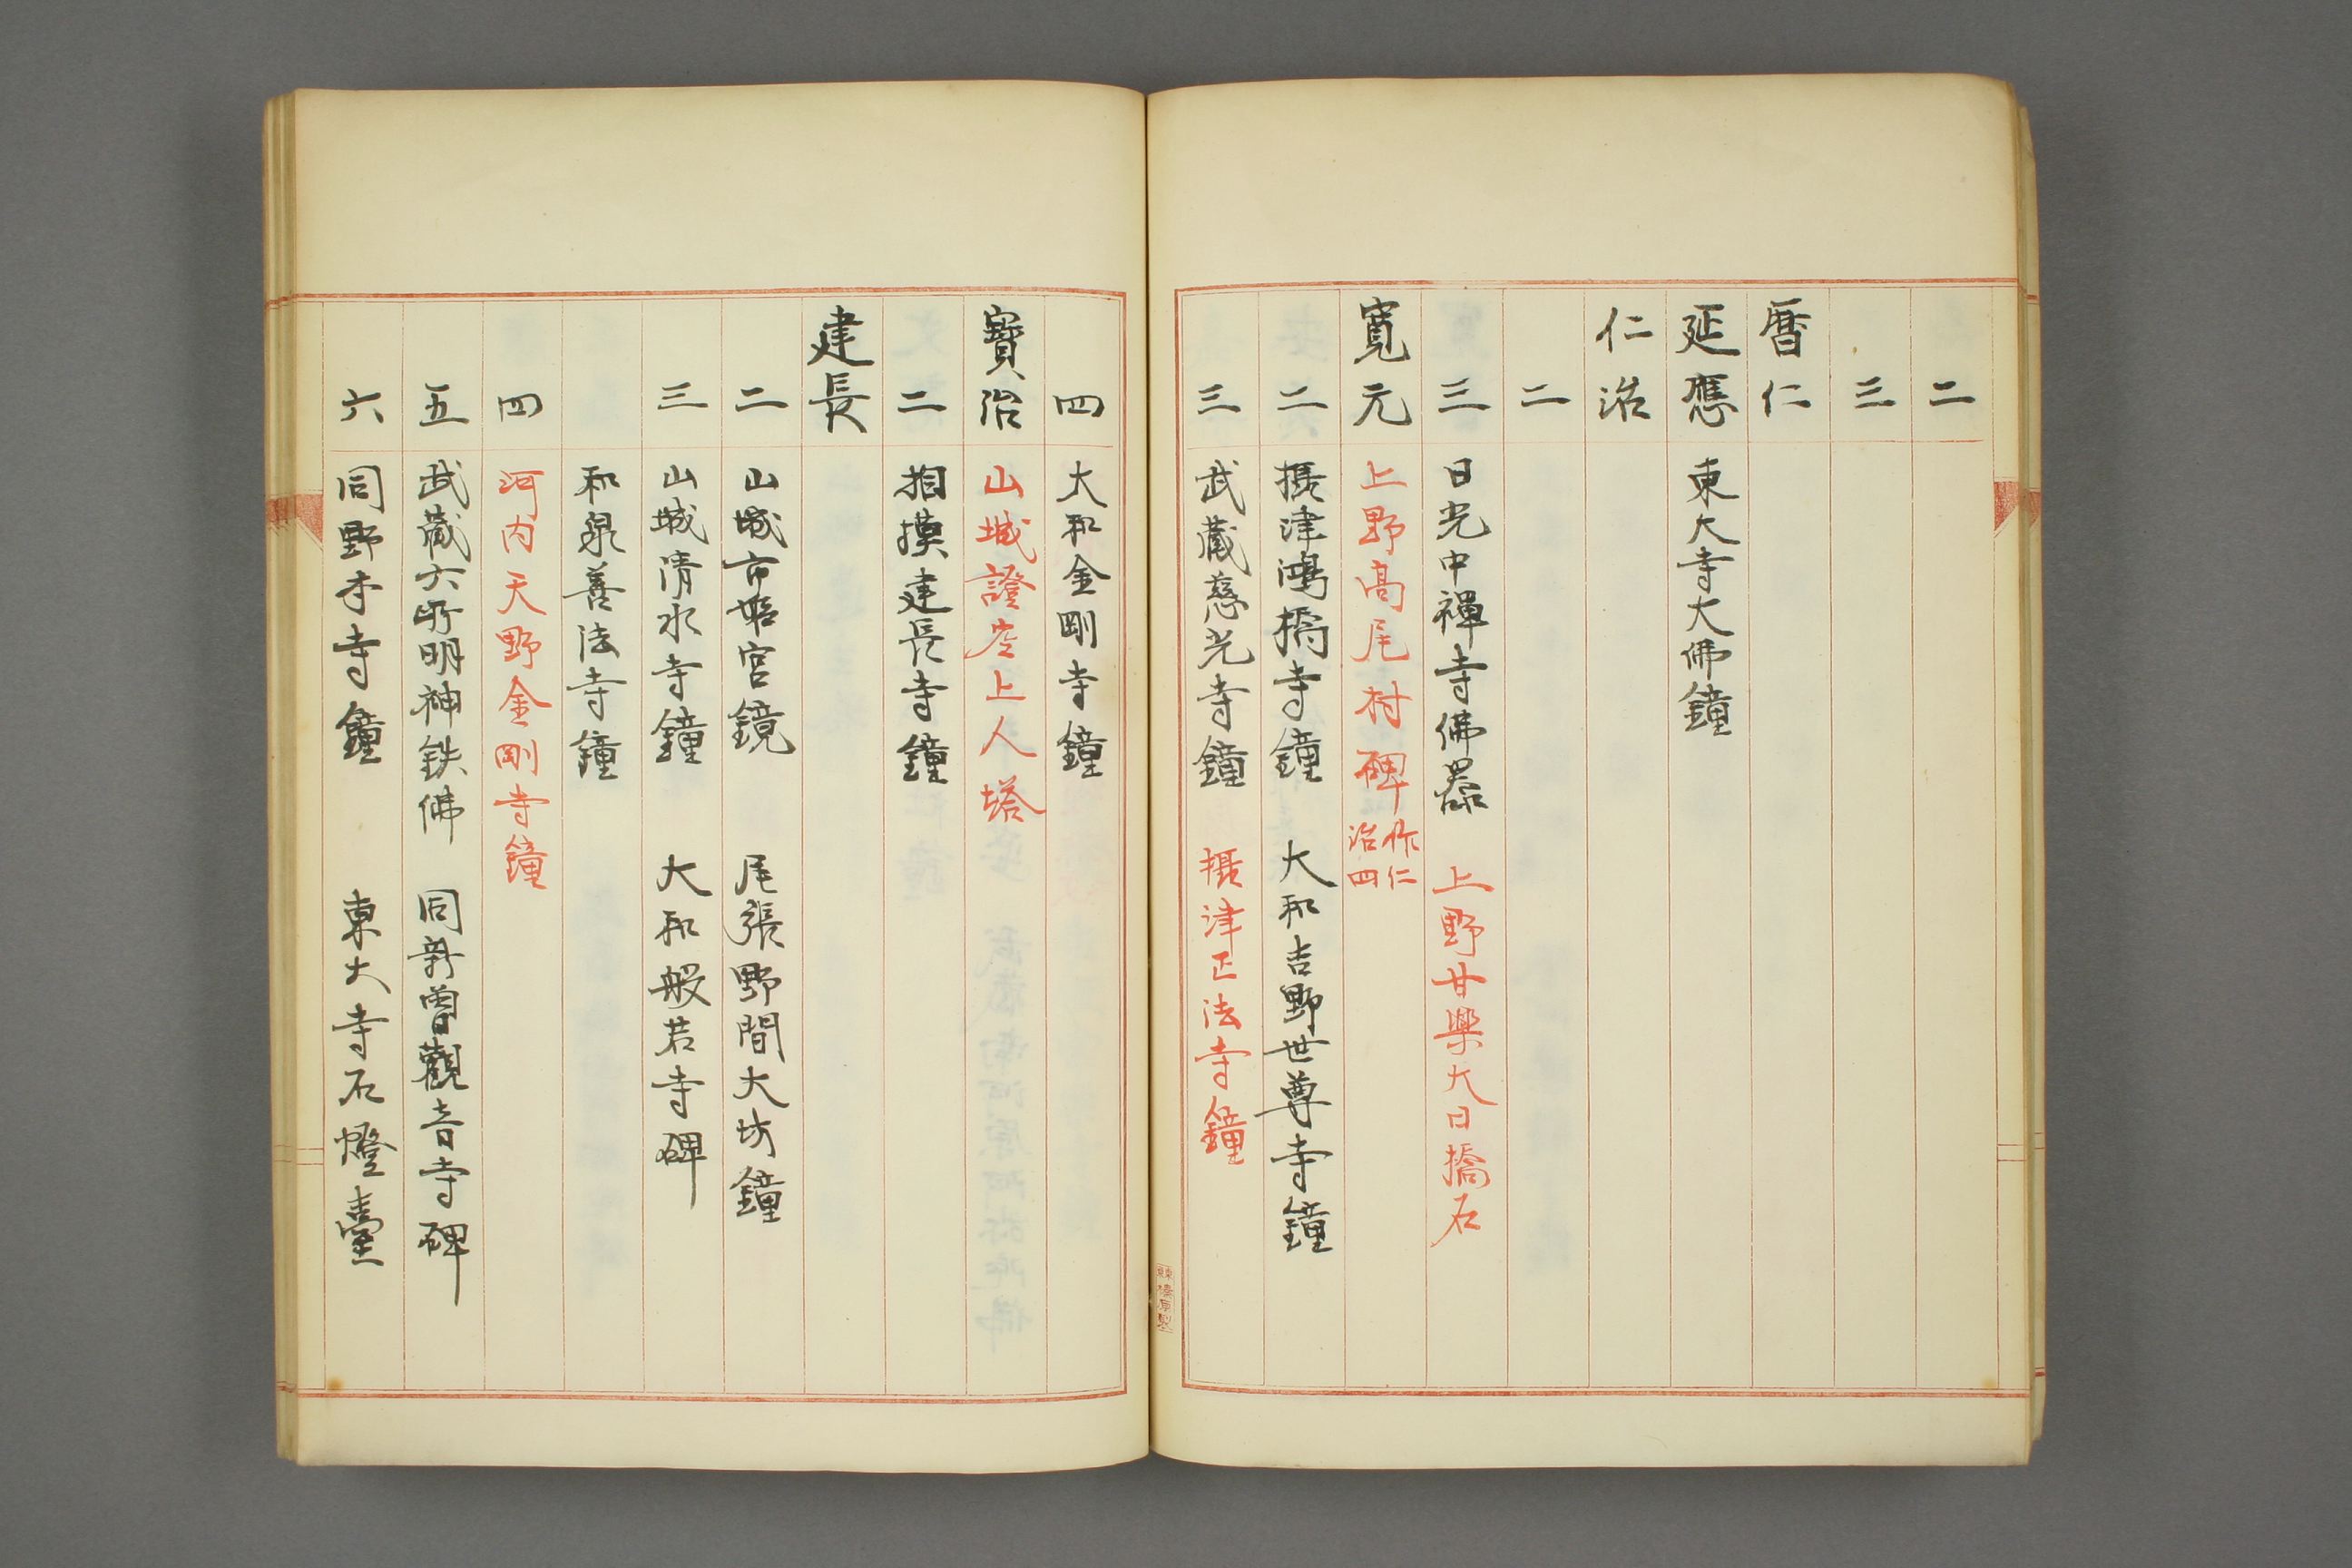 二
三
暦仁
延應 東大寺大佛鐘
仁治
二
三 日光中禪寺佛器 上野甘樂大日橋石
寛元 上野高尾村碑 作仁治四
二 摂津鴻橋寺鐘 大和吉野世尊寺鐘
三 武蔵慈光寺鐘 摂津正法寺鐘
四 大和金剛寺鐘
寳治 山城證空上人塔
二 相摸建長寺鐘
建長
二 山城市姫宮鏡 尾張野間大坊鐘
三 山城清水寺鐘 大和般若寺碑
和泉善法寺鐘
四 河内天野金剛寺鐘
五 武蔵六所明神鉄佛 同新曽觀音寺碑
六 同野本寺鐘 東大寺石燈臺